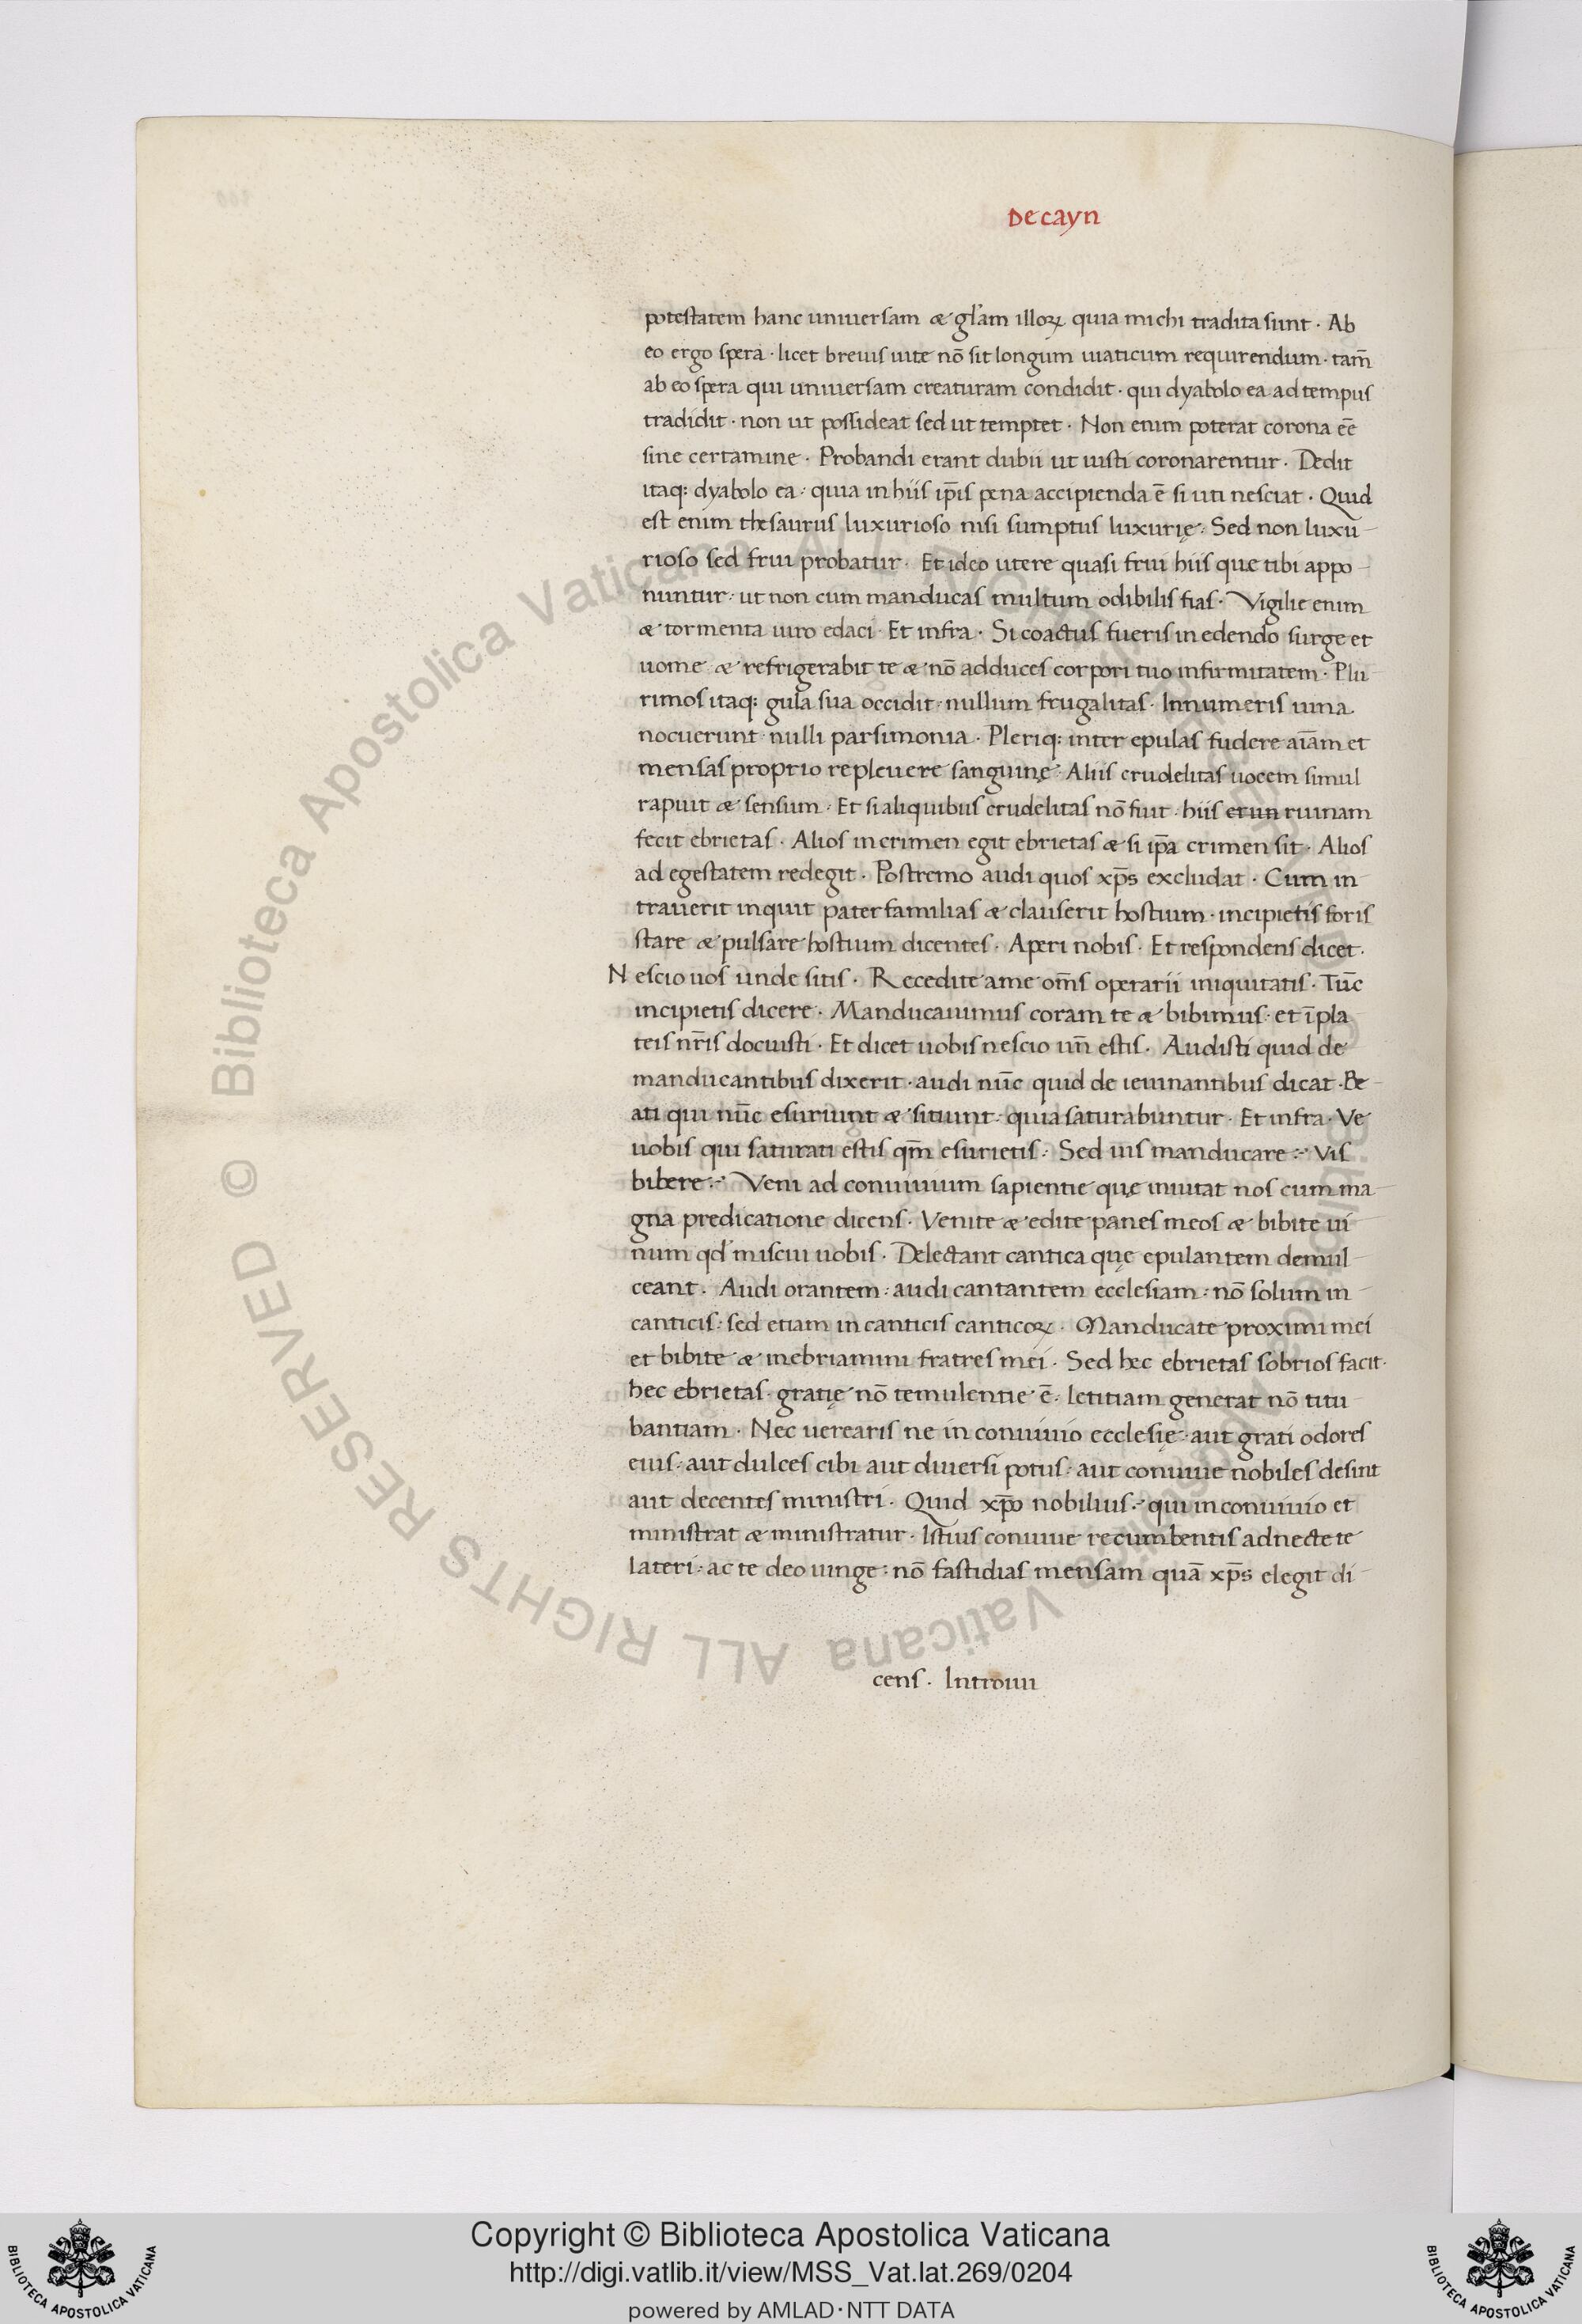 De cayn
potestatem hanc uniuersam & gl̄am illoꝝ quia michi tradita sunt · Ab
eo ergo spera · licet breuis uite nō sit longum uiaticum requirendum · tam̄
ab eo spera qui uniuersam creaturam condidit · qui dyabolo ea ad tempus
tradidit · non ut possideat sed ut temptet · Non enim poterat corona eē
sine certamine · Probandi erant dubii ut iusti coronarentur · Dedit
itaq; dyabolo ea · quia in hiis ip̄is pena accipienda ē si uti nesciat · Quid
est enim thesaurus luxurioso nisi sumptus luxurię · Sed non luxu
rioso sed frui probatur · Et ideo utere quasi frui hiis que tibi appo
nuntur · ut non cum manducas multum odibilis fias · Vigilie enim
& tormenta uiro edaci · Et infra · Si coactus fueris in edendo surge et
uome & refrigerabit te & nō adduces corpori tuo infirmitatem · Plu
rimos itaq; gula sua occidit · nullum frugalitas · Innumeris uina
nocuerunt · nulli parsimonia · Pleriq; inter epulas fudere aīam et
mensas proprio repleuere sanguinę · Aliis crudelitas uocem simul
rapuit & sensum · Et si aliquibus crudelitas nō fuit · hiis et un ruinam
fecit ebrietas · Alios in crimen egit ebrietas & si ip̄a crimen sit · Alios
ad egestatem redegit · Postremo audi quos xp̄s excludat · Cum in
trauerit inquit paterfamilias & clauserit hostium · incipietis foris
stare & pulsare hostium dicentes · Aperi nobis · Et respondens dicet ·
Nescio uos unde sitis · Recedite a me om̄s operarii iniquitatis · Tūc
incipietis dicere · Manducauimus coram te & bibimus · et ī pla
teis nr̄is docuisti · Et dicet uobis nescio un̄ estis · Audisti quid de
manducantibus dixerit · audi nūc quid de ieiunantibus dicat · Be
ati qui nūc esuriunt & sitiunt · quia saturabuntur · Et infra · Ve
uobis qui saturati estis qm̄ esurietis · Sed uis manducare · Vis
bibere · Veni ad conuiuium sapientie quę inuitat nos cum ma
gna predicatione dicens · Venite & edite panes meos & bibite ui
num qd̄ miscui uobis · Delectant cantica quę epulantem demul
ceant · Audi orantem · audi cantantem ecclesiam · nō solum in
canticis · sed etiam in canticis canticoꝝ · Manducate proximi mei
et bibite & inebriamini fratres mei · Sed hec ebrietas sobrios facit ·
hec ebrietas · gratię nō temulentie ē · letitiam generat nō titu
bantiam · Nec uerearis ne in conuiuio ecclesię · aut grati odores
eius · aut dulces cibi aut diuersi potus · aut conuiue nobiles desint
aut decentes ministri · Quid xp̄o nobilius · qui in conuiuio et
ministrat & ministratur · Istius conuiue recumbentis adnecte te
lateri · ac te deo iunge · nō fastidias mensam quā xp̄s elegit di
cens · Introiui
© Biblioteca Apostolica Vaticana ALL RIGHTS RESERVED
Copyright © Biblioteca Apostolica Vaticana
http://digi.vatlib.it/view/MSS_Vat.lat.269/0204
powered by AMLAD·NTT DATA
BIBLIOTECA APOSTOLICA VATICANA
BIBLIOTECA APOSTOLICA VATICANA